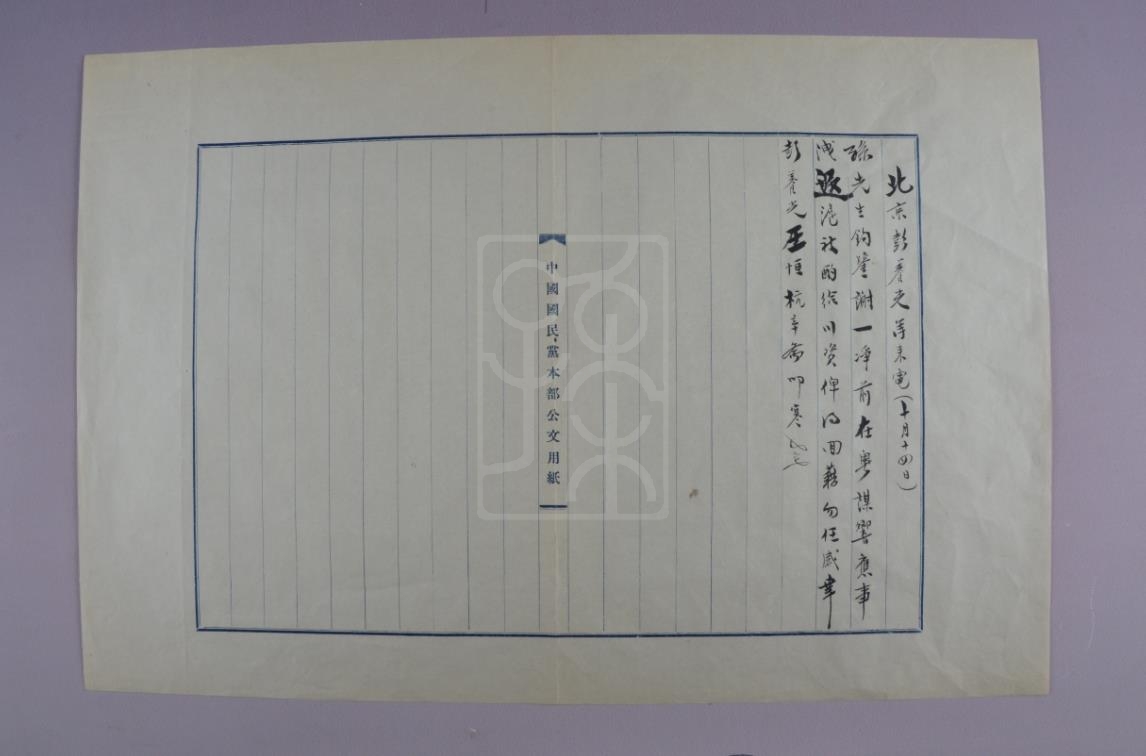 北京彭養光等來電（十月十四日）
孫先生鈞鑒謝一淨前在粵謀響應事
洩返滬祈酌給川資俾得回籍勿任感幸
彭養光王恒杭辛齋叩寒
中國國民黨本部公文用紙